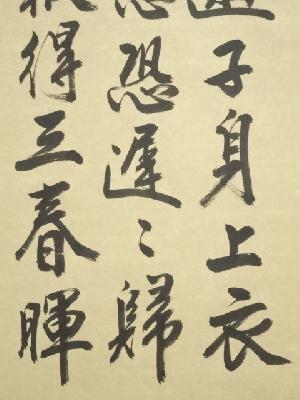 子身上衣
恐遲〻歸
得三春暉